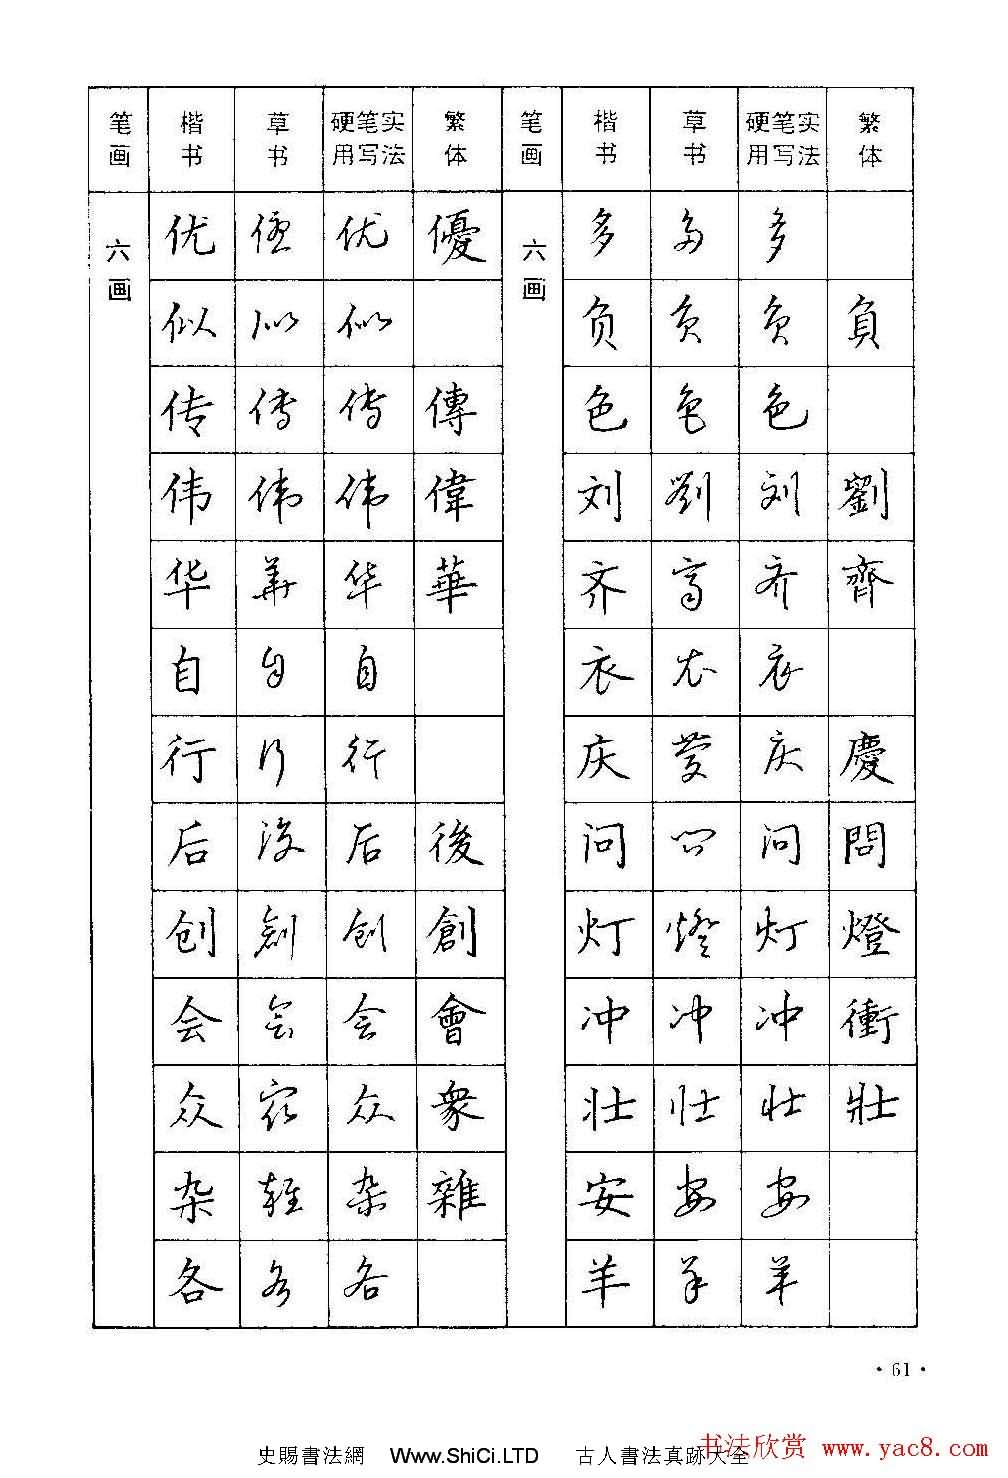 笔画 楷书 草书 硬笔实用写法 繁体 笔画 楷书 草书 硬笔实用写法 繁体
六画 优 优 优 優 六画 多 多 多
似 似 似 负 负 负 負
传 传 传 傳 色 色 色
伟 伟 伟 偉 刘 劉 刘 劉
华 華 华 華 齐 齐 齐 齊
自 自 自 衣 衣 衣
行 行 行 庆 慶 庆 慶
后 後 后 後 问 问 问 問
创 創 创 創 灯 燈 灯 燈
会 会 会 會 冲 冲 冲 衝
众 众 众 衆 壮 壮 壮 壯
杂 雜 杂 雜 安 安 安
各 各 各 羊 羊 羊
·61·
史賜書法網 Www.ShiCi.LTD 古人書法真跡大全
书法欣赏 www.yac8.com